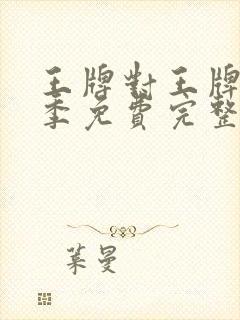 王牌對王牌
季免費完整
葉曼